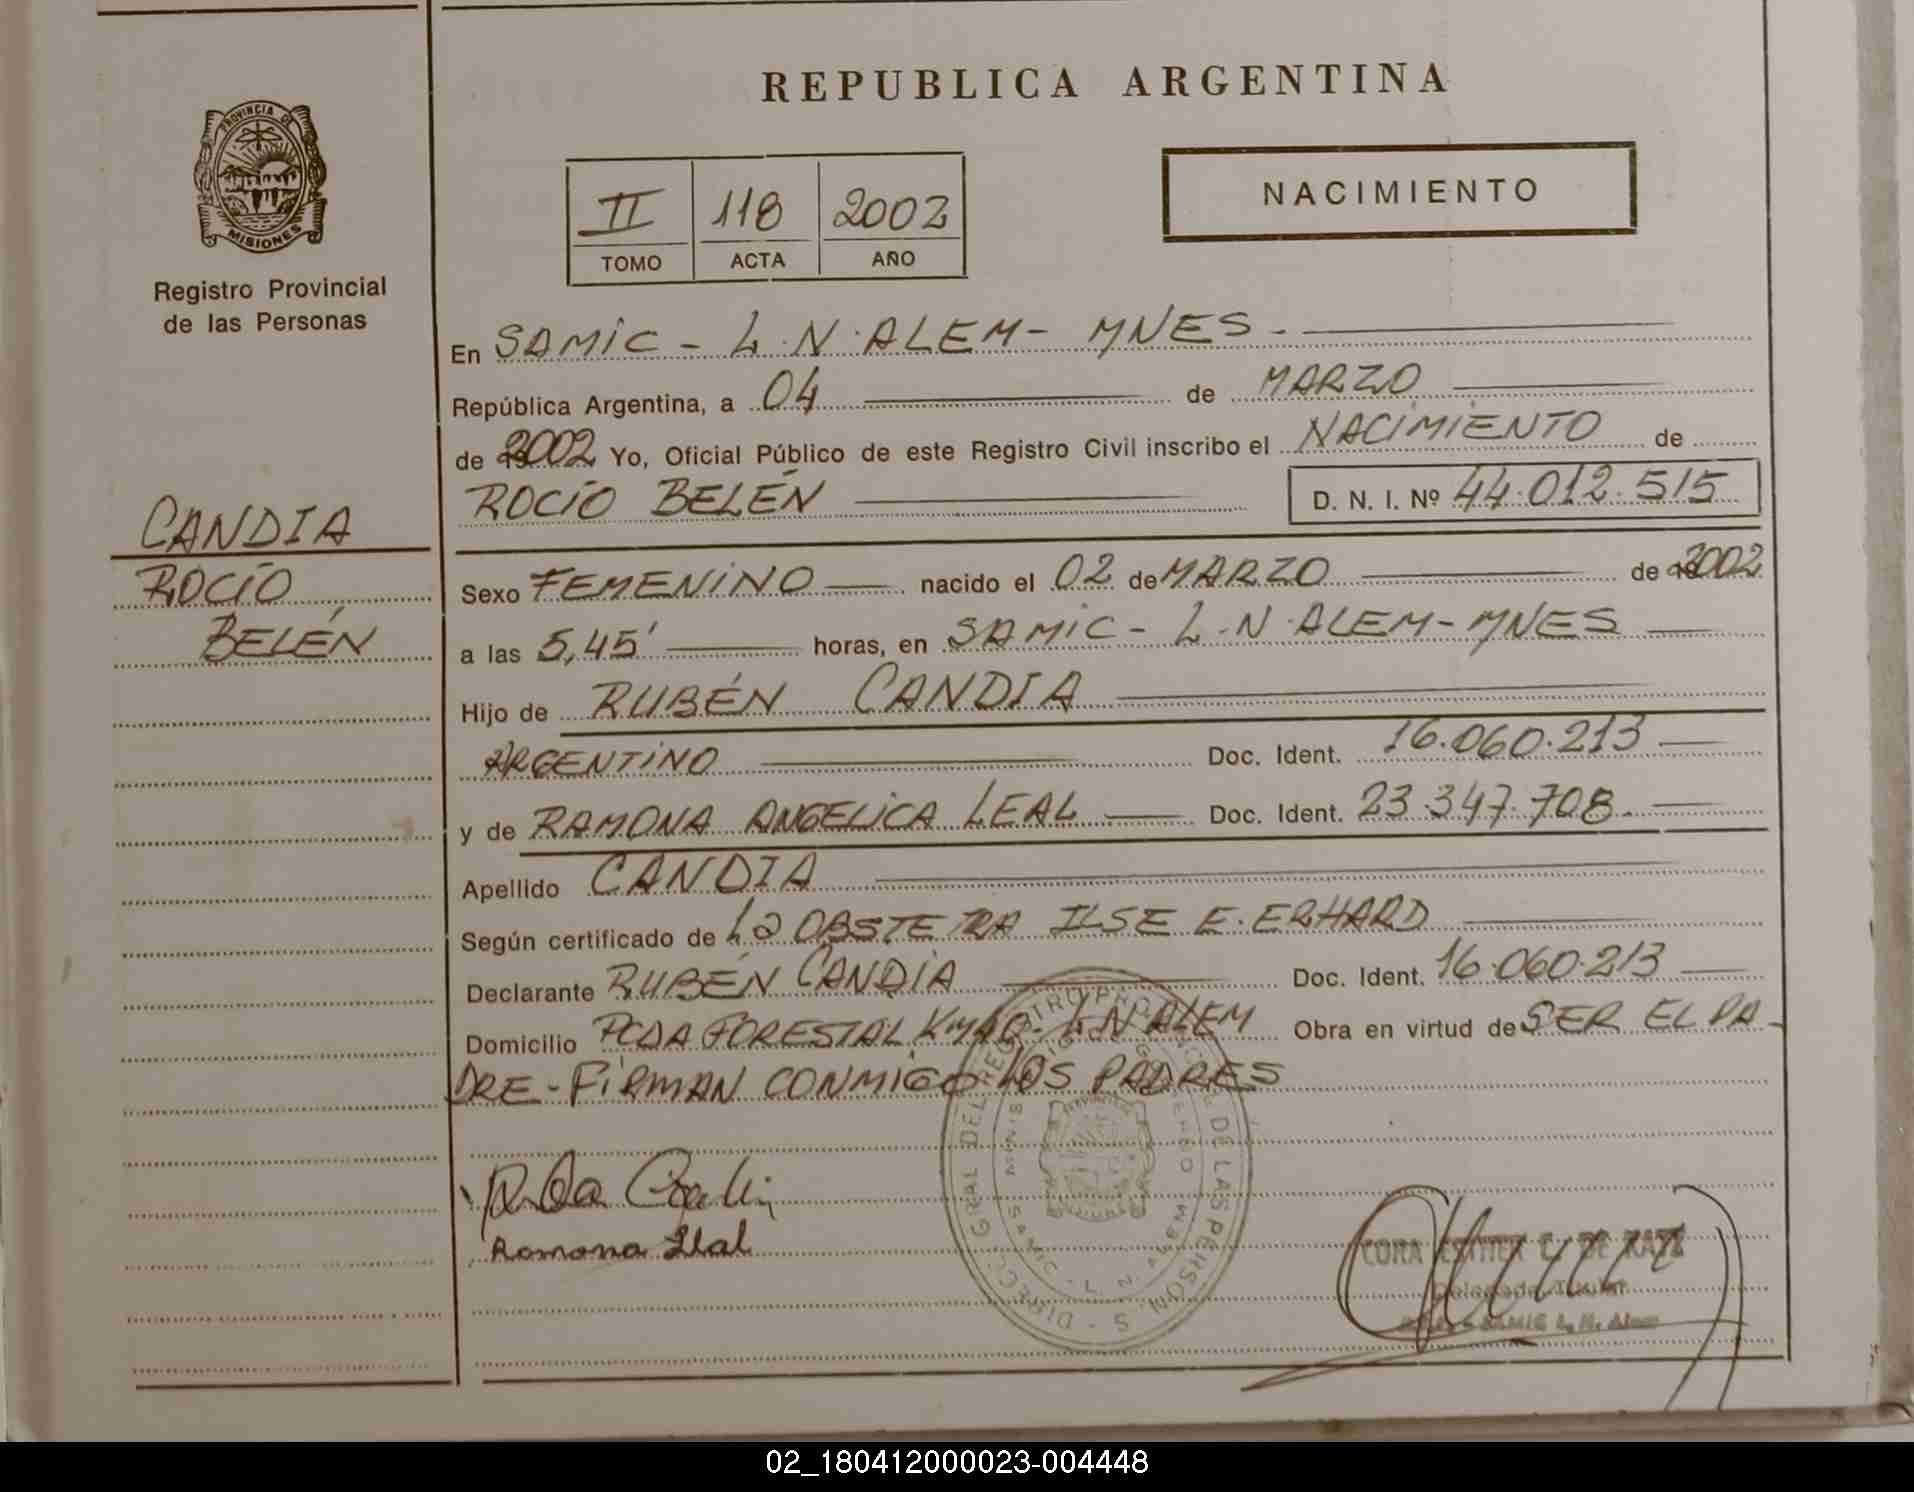 REPUBLICA ARGENTINA
PROVINCIA DE
MISIONES
Registro Provincial
de las Personas
NACIMIENTO
II 118 2002
TOMO ACTA AÑO
En SAMIC - L.N.ALEM- MNES.-
República Argentina, a 04 de MARZO
de 2002 Yo, Oficial Público de este Registro Civil inscribo el NACIMIENTO de
ROCÍO BELÉN D. N. I. Nº 44.012.515
CANDIA
ROCÍO
BELÉN
Sexo FEMENINO nacido el 02 de MARZO de 2002
a las 5,45' horas, en SAMIC- L.N.ALEM-MNES
Hijo de RUBÉN CANDIA
ARGENTINO Doc. Ident. 16.060.213
y de RAMONA ANGELICA LEAL Doc. Ident. 23.347.708.
Apellido CANDIA
Según certificado de La OBSTETRA ILSE E. ERHARD
Declarante RUBÉN CANDIA Doc. Ident. 16.060.213
Domicilio PCDA FORESTAL L.N ALEM Obra en virtud de SER EL PA-
DRE - FIRMAN CONMIGO LOS PADRES
Ramona Leal
DIRECC. GRAL. DEL REGISTRO PROVINCIAL DE LAS PERSONAS
SAMIC - L. N. ALEM
CORA ESTHER DE KATZ
Delegada Titular
SAMIC L. N. Alem
02_180412000023-004448